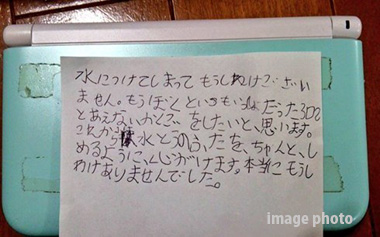 水につけてしまって もうしわけござい
ません。もうぼくといつもいっしょだった3DS
とあえないかくごをしたいと、思います。
これから水とうのふたを、ちゃんと、し
めるように、心がけます。本当にもうし
わけありませんでした。
image photo